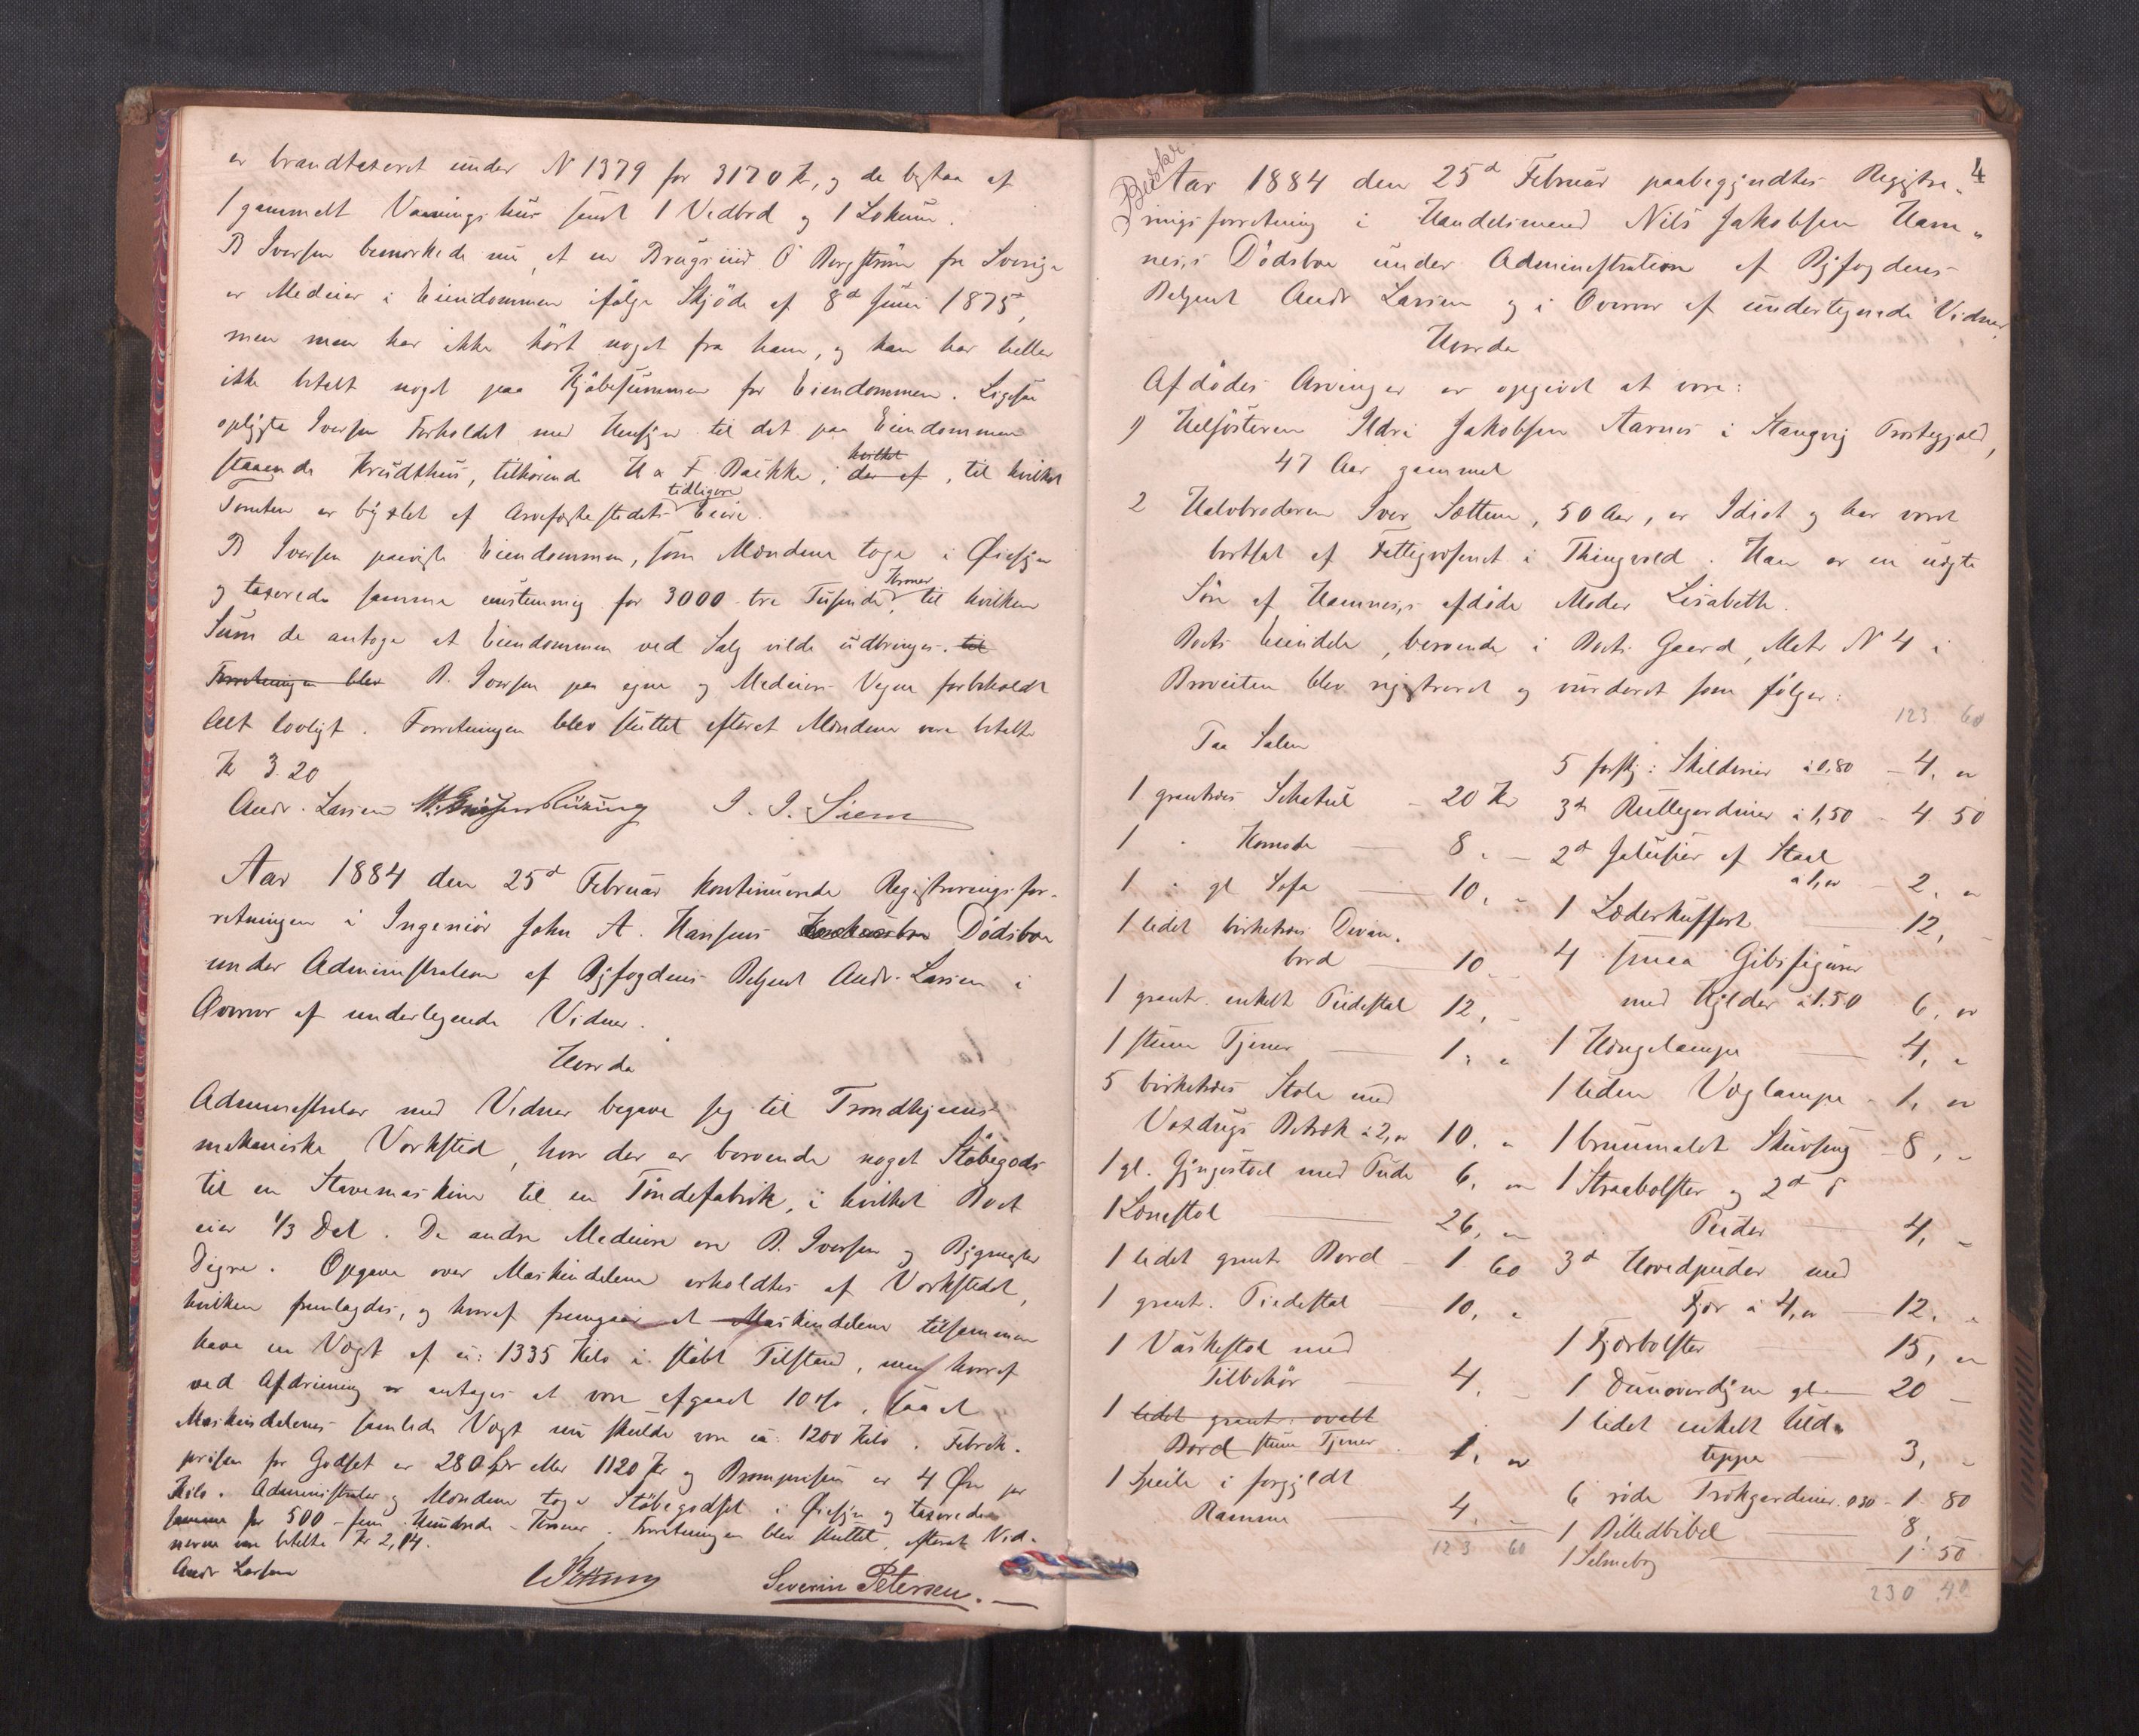 er brandtaxeret under N 1379 for 3170 Kr, og de bestaa af
1 gammelt Vaaningshus samt 1 Vedbod og 1 Lokum.
B Iversen bemærkede nu, at en Brugseier O Bergstrøm fra Sverige
er Medeier i Eiendommen ifølge Skjøde af 8d Juni 1875,
men man har ikke hørt noget fra ham, og han har heller
ikke betalt noget paa Kjøbesummen for Eiendommen. Ligesaa
oplyste Iversen Forholdet med Hensyn til det paa Eiendommen
staaende Krudthus, tilhørende H & F. Bachke, der af, til hvilket
hvilket
Tomten er bygslet af Arvefæstestedets Eiere.
tidligere
B Iversen paaviste Eiendommen, som Mændene toge i Øiesyn
og taxerede samme enstemmig for 3000 tre Tusinde, til hvilken
Kroner
Sum de antoge at Eiendommen ved Salg vilde udbringes. til
Forretningen blev B. Iversen paa egne og Medeiers Vegne forbeholdt
Alt lovligt. Forretningen blev sluttet efterat Mændene vare betalte
Kr 3.20
Andr. Larsen J. J. Siem
Aar 1884 den 25d Februar kontinuerede Registreringsfor-
retningen i Ingeniør John A. Hansens Konkursbo Dødsbo
under Administration af Byfogdens Betjent Andr. Larsen i
Overvær af undertegnede Vidner.
Hvorda
Administrator med Vidner begave sig til Trondhjems
mekaniske Værksted, hvor der er beroende noget Støbegods
til en Stavemaskine til en Tøndefabrik, i hvilket Boet
eier 1/3 Del. De andre Medeiere ere B. Iversen og Bygmester
Digre. Opgave over Maskindelene erholdtes af Værkstedet,
hvilken fremlagdes, og hvoraf fremgaar at Maskindelene tilsammen
have en Vægt af ca: 1335 Kilo i støbt Tilstand, men hvoraf
ved Afdreining er antages at være afgaaet 10 %, saa at
Maskindelenes samlede Vægt nu skulde være ca: 1200 Kilo. Fabrik-
prisen for Godset er 280 Spd eller 1120 Kr og Bromprisen er 4 Øre pr
Kilo. Administrator og Mændene toge Støbegodset i Øiesyn og taxerede
samme for 500 - fem Hundrede - Kroner. Forretningen blev sluttet, efterat Vid-
nerne vare betalte Kr 2,14.
Andr Larsen Severin Petersen.
4
Beskr.
Aar 1884 den 25d Februar paabegyndtes Registre-
ringsforretning i Handelsmand Nils Jakobsen Ham-
nes,s Dødsbo under Administration af Byfogdens
Betjent Andr Larsen og i Overvær af undertegnede Vidner,
Hvorda
Afdødes Arvinger er opgivet at være:
1) Helsøsteren Ildri Jakobsen Aarnes i Stangvig Præstegjeld,
47 Aar gammel
2 Halvbroderen Iver Sættem, 50 Aar, er Idiot og har været
bortsat af Fattigvæsenet i Thingvold. Han er en uægte
Søn af Hamnes,s afdøde Moder Lisabeth.
Boets Eiendele, beroende i Boets Gaard, Matr N 4 i
Braveiten blev registreret og vurderet som følger:
Paa Salen
1 grantræes Schatul - 20 Kr
1 " Komode - 8. -
1 " gl Sofa - 10, -
1 lidet birketræes Divan-
bord - 10 -
1 grantr. enkelt Piedestal 12, -
1 stum Tjener - 1. "
5 birketræes Stole med
Voxdugs Betræk à 2,00 10. "
1 gl. Gyngestol med Pude 6, 00
1 Lænestol - 26, 00
1 lidet grantr Bord - 1 60
1 grantr. Piedestal - 10, "
1 Vaskestol med
Tilbehør - 4. -
1 lidet grantr: ovalt
Bord stum Tjener - 1, 00
1 Speile i forgyldt
Ramme - 4. -
123 60
123 60
5 forskj: Skilderier à 0,80 - 4. 00
3d Rullegardiner à 1,50 - 4 50
2d Jalusier af Staal
à 1,00 - 2. 00
1 Læderkuffert - 12, -
4 smaa Gibsfigurer
med Hylder à 1.50 6, 00
1 Hængelampe - 4, "
1 liden Væglampe - 1, 00
1 brunmalet Skuvseng - 8, -
1 Straabolster og 2d
Puder - 4, -
3d Hovedpuder med
Fjær à 4,00 - 12. "
1 Fjærbolster - 15, 00
1 Dunoverdyne gl - 20 -
1 lidet enkelt Uld-
teppe - 3, -
6 røde Trækgardiner. 0 30 - 1 80
1 Billedbibel - 8,
1 Salmebog - 1 50
230 40